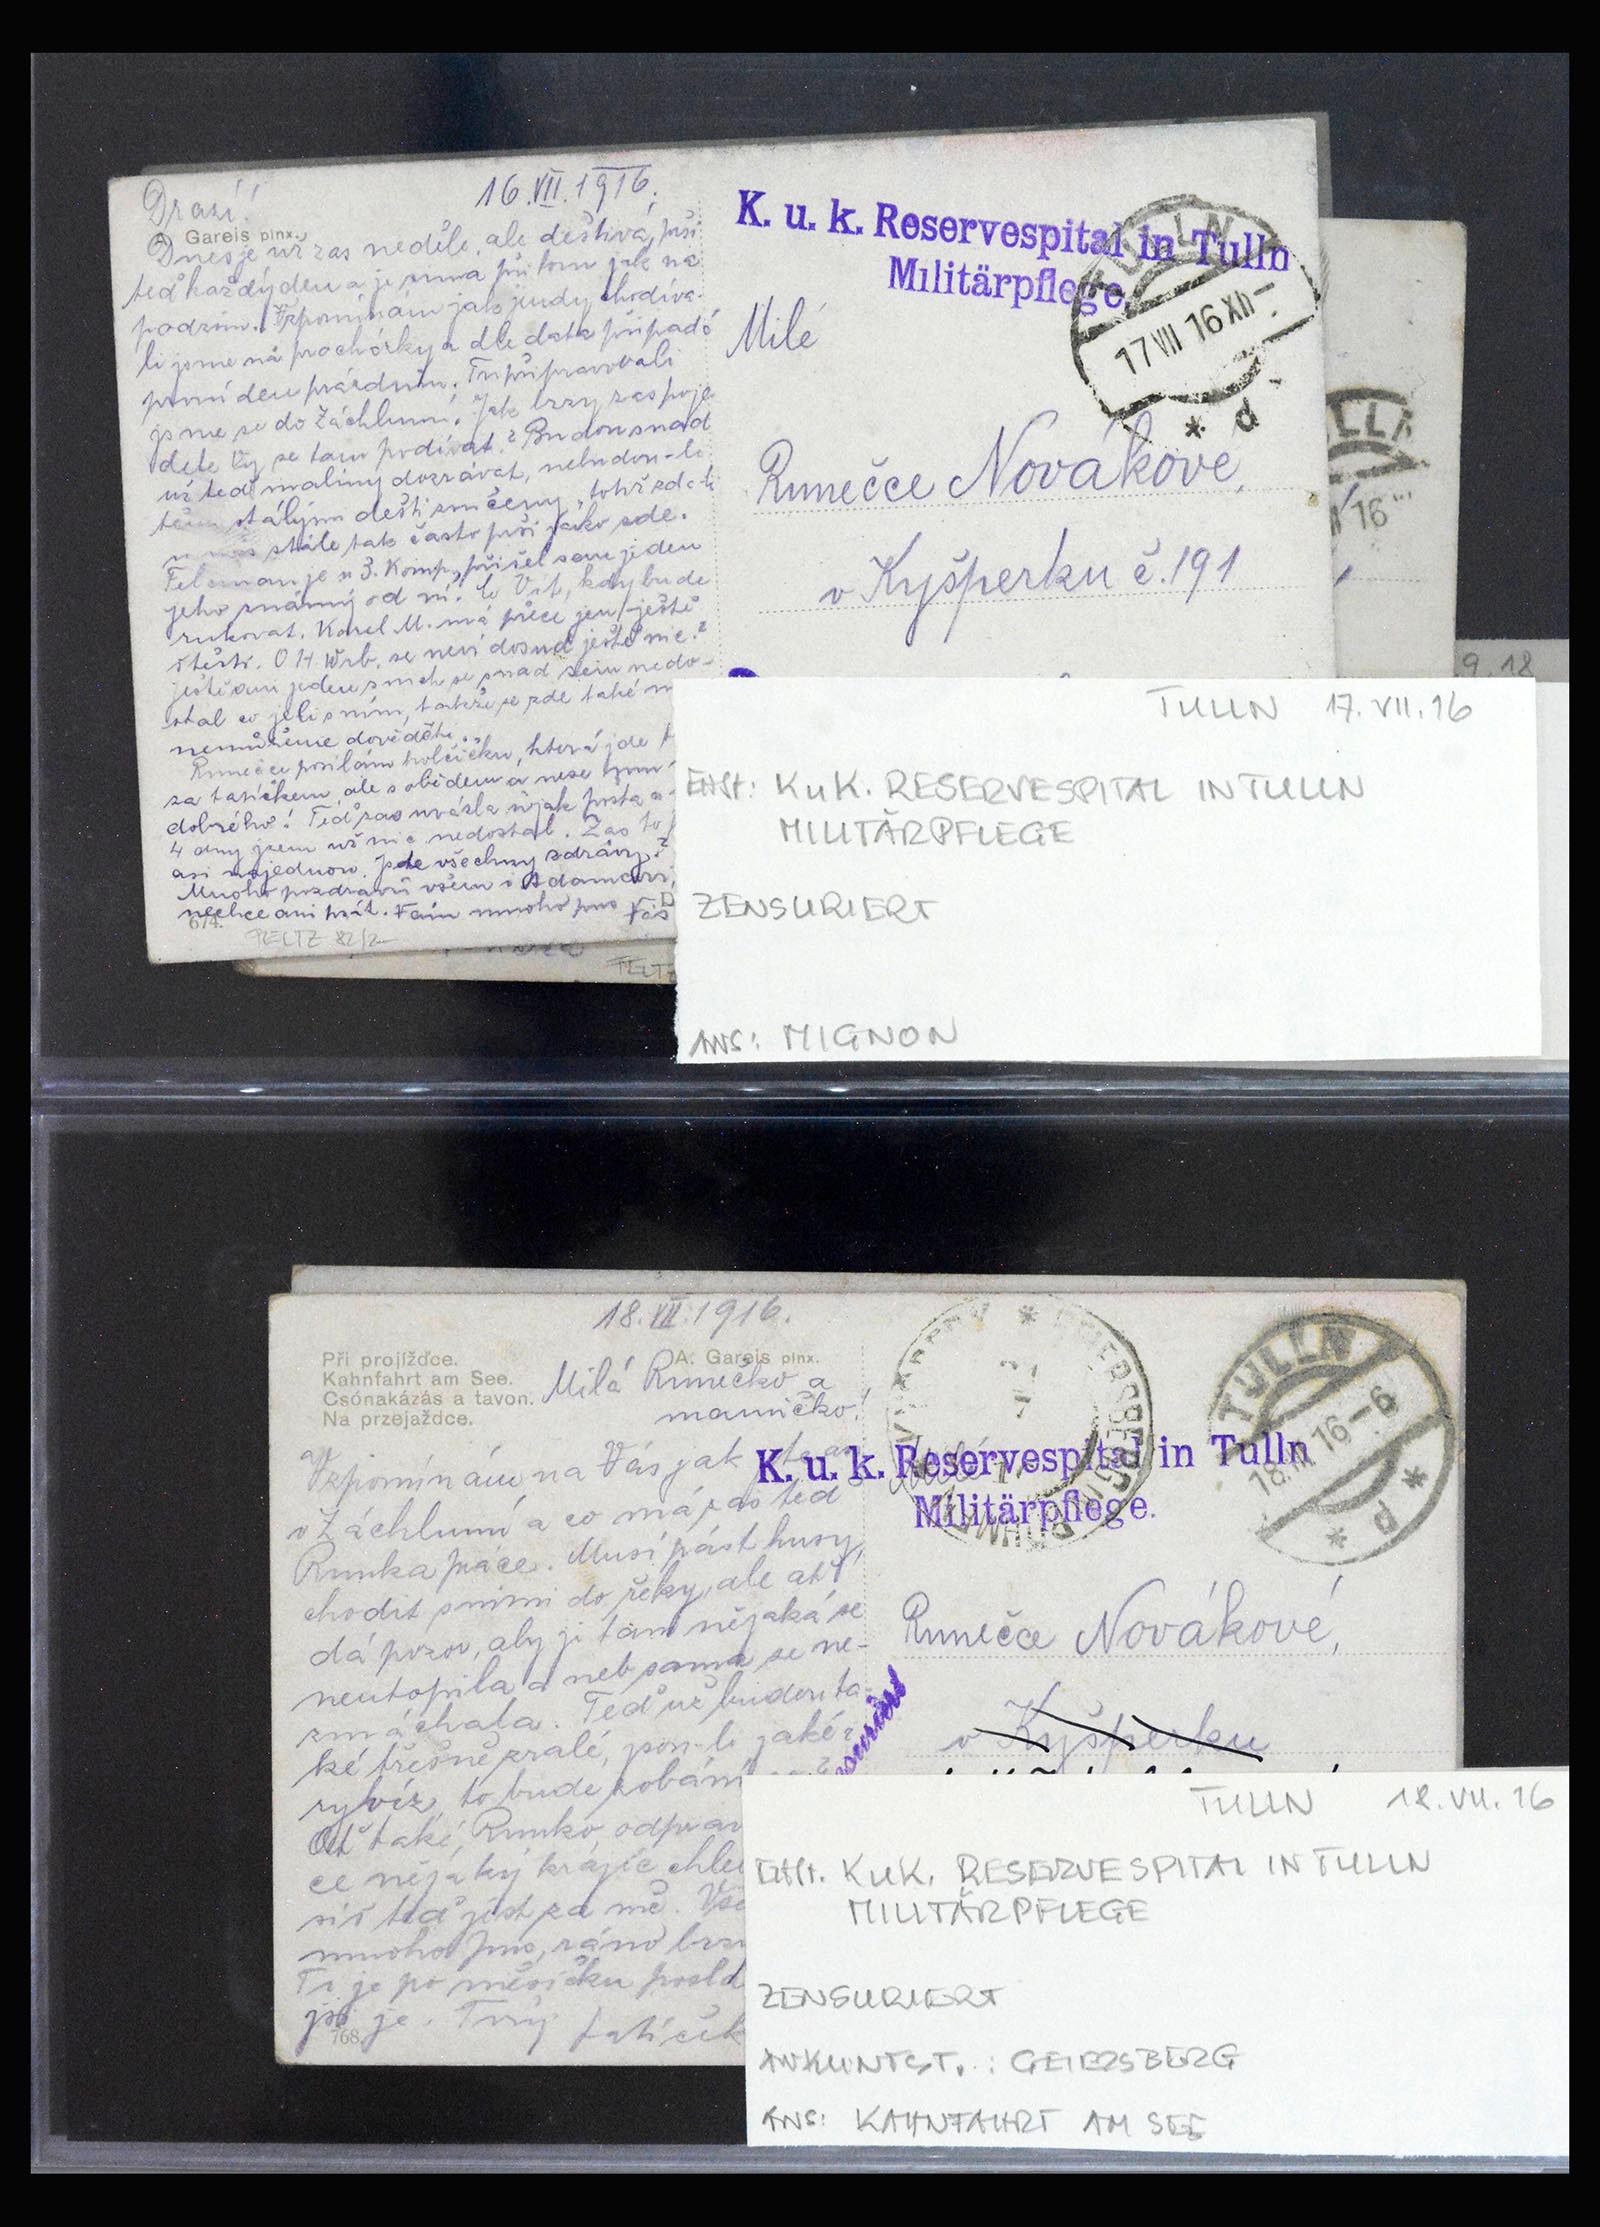 Drazí!
16.VII.1916.
A. Gareis pinx.
Dnes je už zas neděle, ale deštivá, prší
teď každý den a je zima při tom jak na
podzim. Vzpomínám jak jindy chodíva-
li jsme na procházky a dle data připadá
první den prázdnin. Tu připravovali
jsme se do Žáchlumí. Jak brzy zas poje-
dete Vy se tam podívat? Budou snad
už teď maliny dozrávat, nebudou-li
těmi stálými dešti zničeny, totiž zda-li
u nás stále tak často prší jako zde.
je u 3. Komp., přišel sem jeden
jeho známý od ní. Co Vít, kdy bude
rukovat. Karel M. má přece jen ještě
štěstí. O H. Wrb. se neví dosud ještě nic?
ještě ani jeden z nich se snad sem nedo-
stal co jeli s ním, takže se zde také n
nemůžeme dovědět.
Runečce posílám holčičku, která jde
za tatíčkem, ale s obědem a nese
dobrého! Teď zas uvázla nějak pošta a
4 dny jsem už nic nedostal. Zas to
asi najednou. Jste všechny zdrávy?
Mnoho pozdravů všem i Adamcovi,
nechce ani psát. Vám mnoho pus Váš
674.
PELTZ 82/2-
K. u. k. Reservespital in Tulln
Militärpflege.
TULLN
17 VII 16 XII-
* d *
Milé
Runečce Novákove,
v Kyšperku č. 191
ULLN
16
9.18
TULLN 17.VII.16
KuK. RESERVESPITAL IN TULLN
MILITÄRPFLEGE
ZENSURIERT
ANS: MIGNON
18.VII.1916.
Při projížďce.
Kahnfahrt am See.
Csónakázás a tavon.
Na przejaźdce.
A. Gareis pinx.
Milá Runečko a
mamičko!
Vzpomínám na Vás jak jste as
v Žáchlumí a co má zas teď
Runka práce. Musí pást husy,
chodit s nimi do řeky, ale ať
dá pozor, aby ji tam nějaká se
neutopila a neb sama se ne-
zmáchala. Teď už budou ta-
ké třešně zralé, jsou-li jaké?
rybíz, to bude zobání
Ať také, Runko, odprav
ce nějaký krajíc chle
síš teď jíst za mě. Vše
mnoho pus, ráno brzy
Ti je po měsíčku posld
jsi je. Tvůj tatíček
768.
K. u. k. Reservespital in Tulln
Militärpflege.
TULLN
18.VII.16-6
* d *
Runečce Novákové,
v Kyšperku
TULLN 18.VII.16
KuK. RESERVESPITAL IN TULLN
MILITÄRPFLEGE
ZENSURIERT
ANKUNTST.: GEIERSBERG
ANS: KAHNFAHRT AM SEE